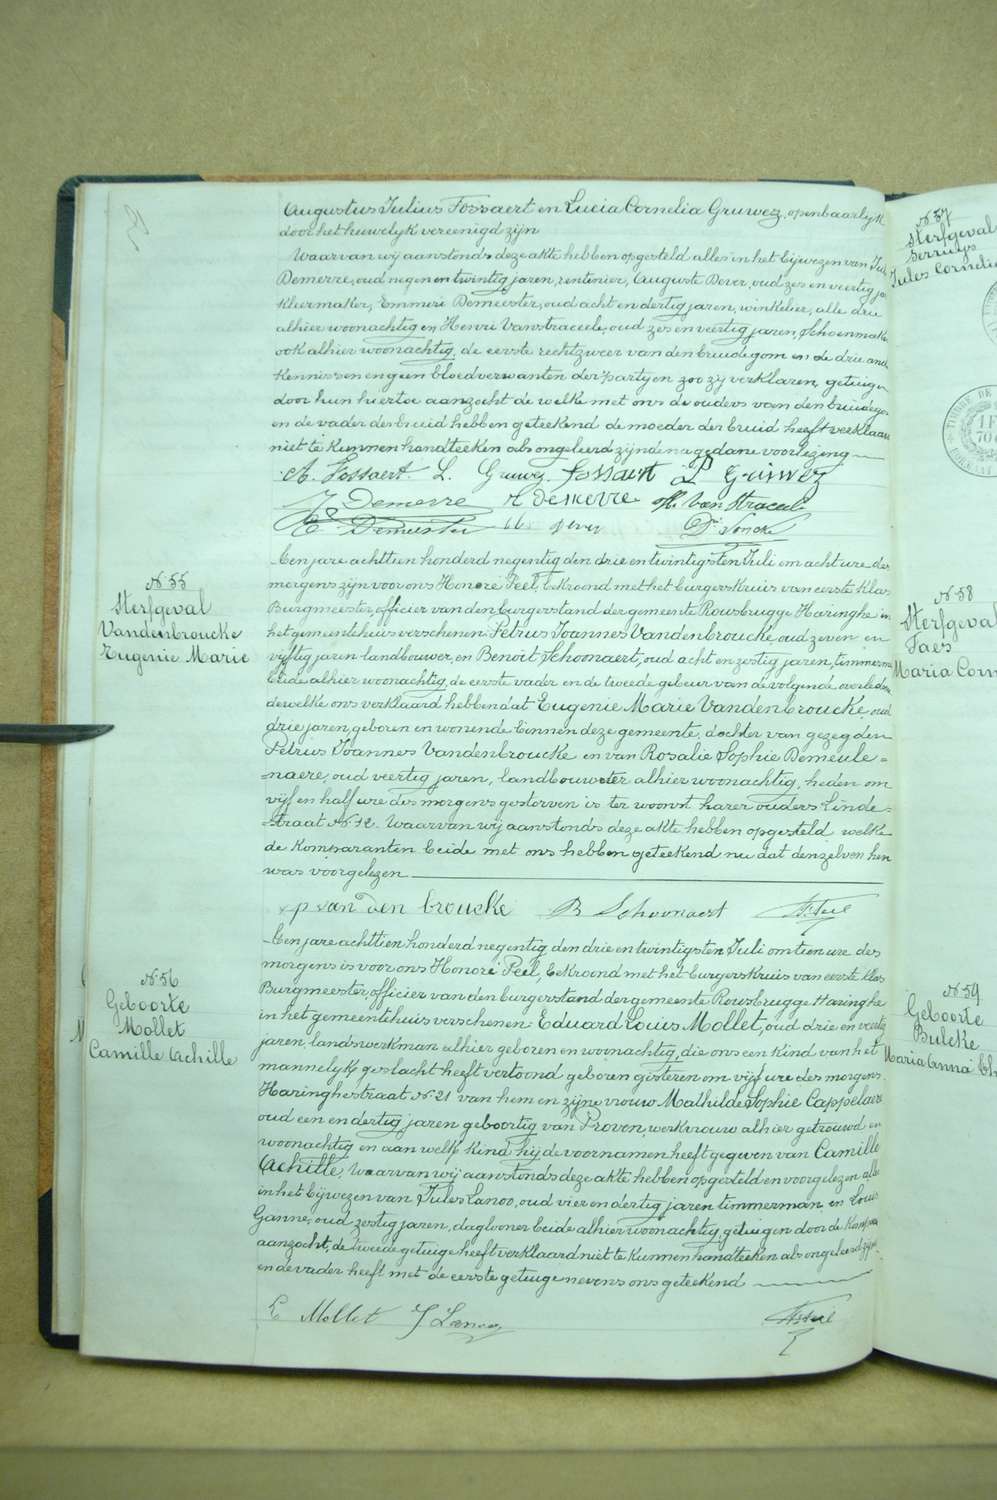 Augustus Julius Fossaert en Lucia Cornelia Gruwez, openbaarlyk
door het huwelyk vereenigd zijn
Waarvan wij aanstonds deze akte hebben opgesteld alles in het bijwezen van
Demerre, oud negen en twintig jaren, rentenier, Auguste Dever, oud zes en veertig
kleermaker, Emmeri Demeester, oud acht en dertig jaren, winkelier, alle drie
alhier woonachtig en Henri Vanstraceele, oud zes en veertig jaren, schoenmak
ook alhier woonachtig, de eerste rechtzweer van den bruidegom en de drie and
kennissen en geen bloedverwanten der partyen zoo zy verklaren, getuigen
door hun hiertoe aanzocht de welke met ons de ouders van den bruidego
en de vader der bruid hebben geteekend de moeder der bruid heeft verklaard
niet te kunnen handteeken als ongeleerd zijnde na gedane voorlezing
A. Fossaert. L. Gruwez. fossaert P gruwez
J Demerre H. Van Straceele
E. Demeester
N. 55
Sterfgeval
Vandenbroucke
Eugenie Marie
Een jare achttien honderd negentig den drie en twintigsten Juli om acht ure des
morgens zijn voor ons Honoré Peel, bekroond met het burgerskruis van eerste klas
Burgmeester, officier van den burgerstand der gemeente Rousbrugge Haringhe in
het gemeentehuis verschenen Petrus Joannes Vandenbroucke, oud zeven en
vijftig jaren landbouwer, en Benoit Schoonaert, oud acht en zestig jaren, timmerma
beide alhier woonachtig, de eerste vader en de tweede gebuur van de volgende overledene
dewelke ons verklaard hebben dat Eugenie Marie Vandenbroucke, oud
drie jaren, geboren en wonende binnen deze gemeente, dochter van gezegden
Petrus Joannes Vandenbroucke en van Rosalie Sophie Demeule=
=naere, oud veertig jaren, landbouwster alhier woonachtig, heden om
vijf en half ure des morgens gestorven is ter woonst harer ouders Linde=
=straat N. 12. Waarvan wij aanstonds deze akte hebben opgesteld welke
de komparanten beide met ons hebben geteekend nu dat denzelven hen
was voorgelezen
p van den broucke B Schoonaert H. Peel
N. 56
Geboorte
Mollet
Camille Achille
Een jare achttien honderd negentig den drie en twintigsten Juli om tien ure des
morgens is voor ons Honoré Peel, bekroond met het burgerskruis van eerste klas
Burgmeester, officier van den burgerstand der gemeente Rousbrugge Haringhe
in het gemeentehuis verschenen Eduard Louis Mollet, oud drie en veertig
jaren, landswerkman alhier geboren en woonachtig, die ons een kind van het
mannelyk geslacht heeft vertoond geboren gisteren om vijf ure des morgens
Haringhestraat N. 21 van hem en zijne vrouw Mathilde Sophie Cappelaere
oud een en dertig jaren geboortig van Proven, werkvrouw alhier getrouwd en
woonachtig en aan welk kind hij de voornamen heeft gegeven van Camille
Achille, Waarvan wij aanstonds deze akte hebben opgesteld en voorgelezen alles
in het bijwezen van Jules Lanoo, oud vier en dertig jaren timmerman, en Louis
Ganne, oud zestig jaren, daglooner beide alhier woonachtig getuigen door de
aanzocht, de tweede getuige heeft verklaard niet te kunnen handteeken als ongeleerd zijnde
en de vader heeft met de eerste getuige nevens ons geteekend
E Mollet J Lanoo H. Peel
N. 57
Sterfgeval
Serruys
Jules Corneli
N. 58
Sterfgeval
Faes
Maria Corn
N. 59
Geboorte
Bulcke
Maria Anna